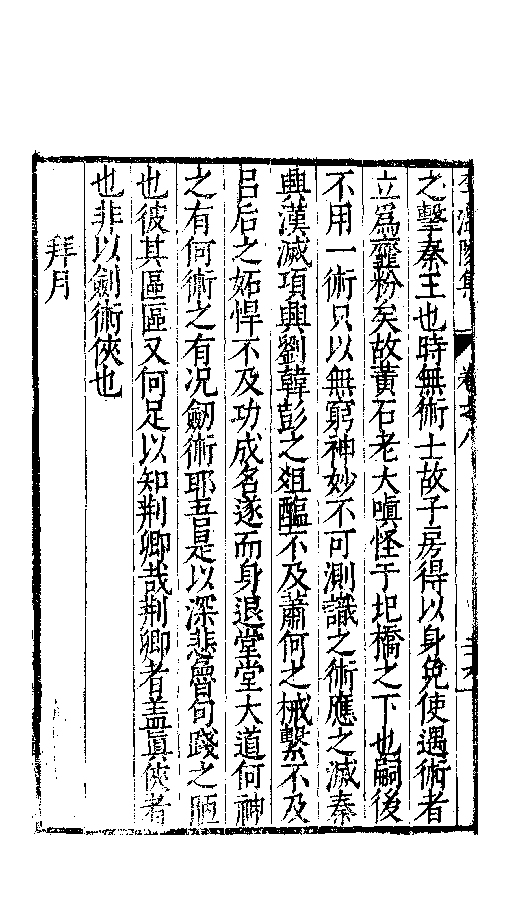 李溫陵集 卷之八
之擊秦王也時無術士故子房得以身免使遇術者
立爲虀粉矣故黃石老大嗔怪于圯橋之下也嗣後
不用一術只以無窮神妙不可測識之術應之滅秦
興漢滅項興劉韓彭之俎醢不及蕭何之械繫不及
呂后之妬悍不及功成名遂而身退堂堂大道何神
之有何術之有况劒術耶吾是以深悲魯句踐之陋
也彼其區區又何足以知荆卿哉荆卿者蓋眞俠者
也非以劍術俠也
拜月